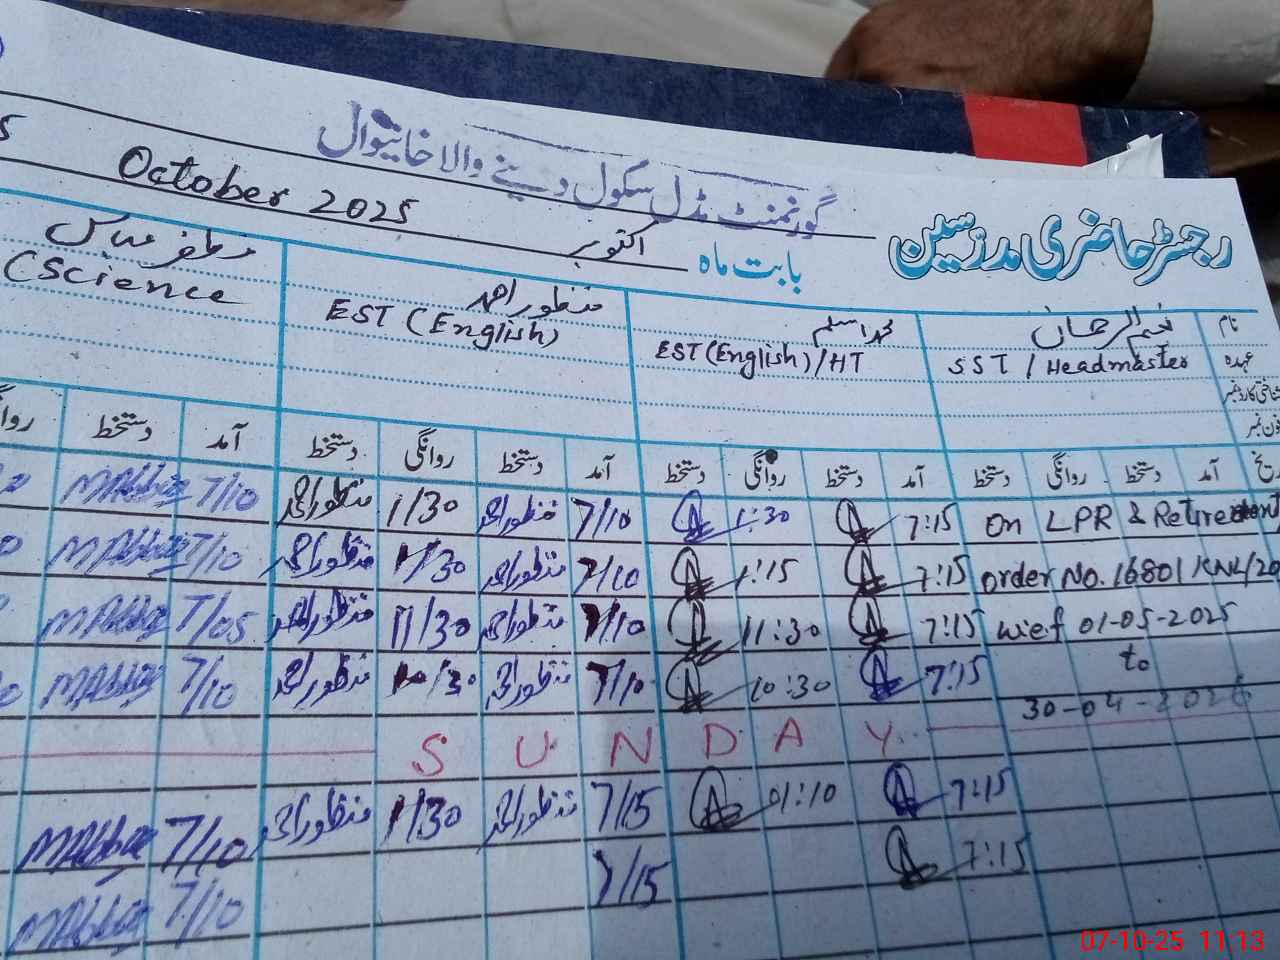 گورنمنٹ مڈل سکول دینے والا خانیوال
October 2025
رجسٹر حاضری مدرسین بابت ماہ اکتوبر
نام نعیم الرحمان محمد اسلم منظور احمد مظفر عباس
عہدہ SST / Headmaster EST (English) / HT EST (English) (Science
شناختی کارڈ نمبر
فون نمبر
آمد دستخط روانگی دستخط آمد دستخط روانگی دستخط آمد دستخط روانگی دستخط آمد دستخط
On LPR & Retirement 7:15 1:30 7/10 منظور احمد 1/30 منظور احمد 7/10 MAbbas
order No. 16801/KNL/20 7:15 1:15 7/10 منظور احمد 1/30 منظور احمد 7/10 MAbbas
w.e.f 01-05-2025 7:15 11:30 7/10 منظور احمد 11/30 منظور احمد 7/05 MAbbas
to 7:15 10:30 7/10 منظور احمد 10/30 منظور احمد 7/10 MAbbas
30-04-2026
SUNDAY
7:15 01:10 7/15 منظور احمد 1/30 منظور احمد 7/10 MAbbas
7:15 7/15 7/10 MAbbas
07-10-25 11:13